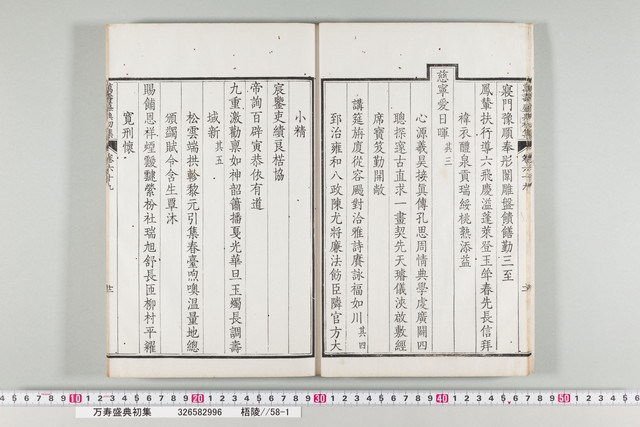 寢門豫順奉彤闈雕盤饋饍勤三至
鳳輦扶行導六飛慶溢蓬萊登玉牟春先長信拜
褘衣醴泉貢瑞綏桃熟添益
慈寧愛日暉其三
心源羲昊接眞傳孔思周情典學虔廣闢四
聰探邃古直求一畫契先天璿儀浹啟敷經
席寶笈勤開敞
講筵旃廈從容颺對洽雅詩賡詠福如川其四
郅治雍和八政陳尤將廉法飭臣隣官方大
小精
宸鑒吏績良楛協
帝詢百辟寅恭依有道
九重激勸稟如神韶簫播戛光華旦玉燭長調壽
域新其五
松雲端拱軫黎元引集春臺喣噢溫量地總
頒蠲賦令含生覃沐
賜餔恩祥煙靉靆縈枌杜瑞旭舒長匝柳村平糶
寬刑懷
万寿盛典初集 326582996 梧陵//58-1